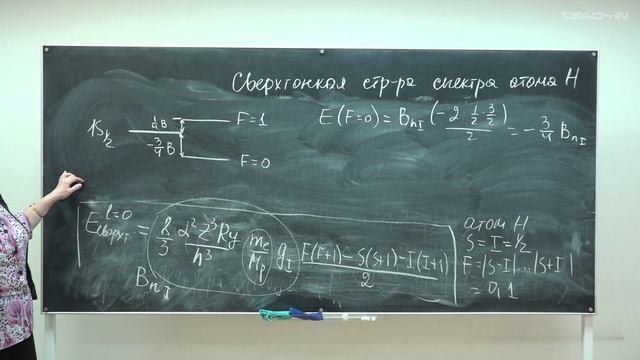 TEACH-IN
Сверхтонкая стр-ра спектра атома H
1S½ ¼B F=1
-¾B F=0
E(F=0) = B_{n_I} (-2·½·3/2)/2 = -¾ B_{n_I}
E_{сверхт}^{l=0} = 8/3 α²Z³Ry/n³ (m_e/M_p) g_I (F(F+1) - S(S+1) - I(I+1))/2
B_{n_I}
атом H
S = I = ½
F = |S-I|...|S+I|
= 0,1